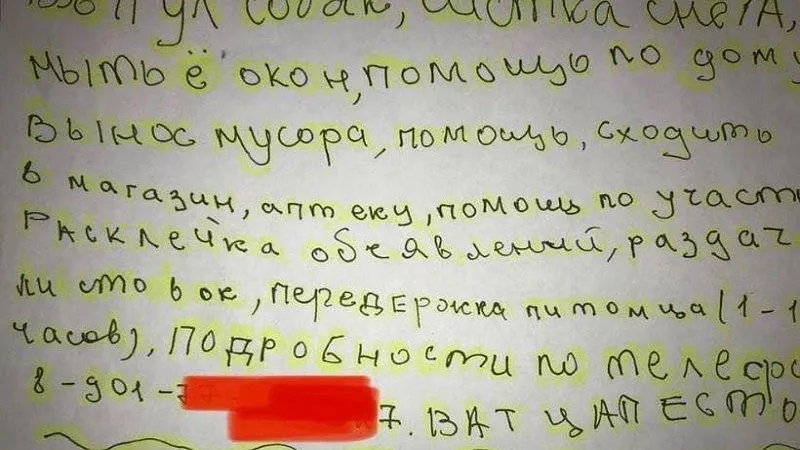 собак, чистка снега,
мытьё окон, помощь по дому
вынос мусора, помощь, сходить
в магазин, аптеку, помощ по участ
Расклейка обеявлений, раздач
листовок, передержка питомца (1-1
часов), ПОДРОБНОСТИ по телефо
8-901-7 7. ВАТЦАП ЕСТ